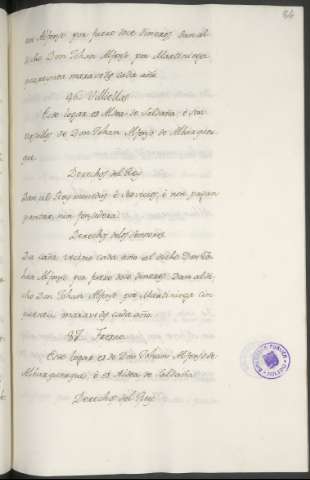 84
an Alfonso por fuero doce dineros. Dan al di-
cho Don Johan Alfonso por Martiniega
maravedis cada año.
96. Villiellas
Este logar es Aldea de Saldaña, é son
vasallos de Don Johan Alfonso de Alburquer-
que
Derechos del Rey
Dan al Rey monedas é servicios, é non pagan
yantar, nin fonsadera.
Derechos delos Señores
Da cada vecino cada año al dicho Don Jo-
han Alfonso por fuero doce dineros. Dan al di-
cho Don Johan Alfonso por Martiniega cin-
cuenta maravedis cada año.
97. Fresno
Este logar es de Don Johan Alfonso de
Alburquerque, é es Aldea de Saldaña
Derechos del Rey